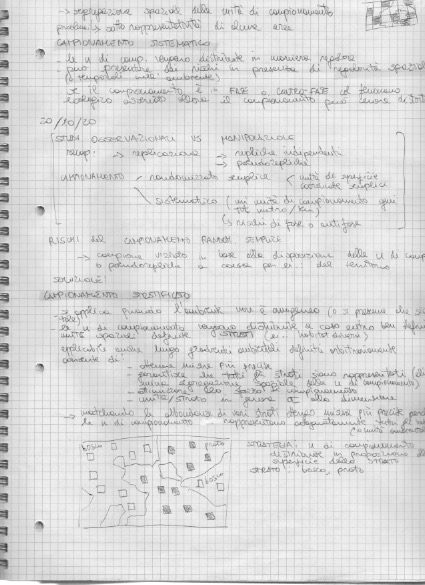 → segregazione spaziale delle unità di campionamento
probabile sotto rappresentatività di alcune aree
CAMPIONAMENTO SISTEMATICO
→ le u di camp. vengono distribuite in maniera regolare
può presentare dei rischi in presenza di regolarità spaziale
(o temporali nell'ambiente)
→ se il campionamento è in FASE o CONTRO FASE col fenomeno
ecologico allora il campionamento può essere
20/10/20
STUDI OSSERVAZIONALI VS MANIPOLAZIONE
→ replicazione → repliche indipendenti
→ pseudorepliche
CAMPIONAMENTO randomizzato semplice unità di superfice
coordinate semplice
sistematico (un unità di campionamento ogni
tot metro/km)
(→ rischi di fase o antifase
RISCHI del CAMPIONAMENTO RANDOM SEMPLICE
→ campione viziato in base alla disposizione delle u di camp
o pseudorepliche a causa per es. del territorio
SOLUZIONE:
CAMPIONAMENTO STRATIFICATO
→ applica quando l'ambiente non è omogeneo (o si presume che sia
tale)
le u di campionamento vengono distribuite a caso entro ben definite
unità spaziali definite STRATI (es. habitat diversi)
applicabile anche lungo gradienti ambientali definiti arbitrariamente
consente di:
- ottenere misure più precise
- garantire che tutti gli strati siano rappresentati
senza segregazione spaziale delle u di campionamento)
- lo sforzo di campionamento
- unità/strato in genere α alla dimensione
→ le abbondanze di vari strati ottengo misure più precise perché
le u di campionamento rappresentano adeguatamente tutti
bosco
prato
bosco
STRATEGIA: u di campionamento
distribuite in proporzione alla
superficie dello STRATO
STRATO: bosco, prato